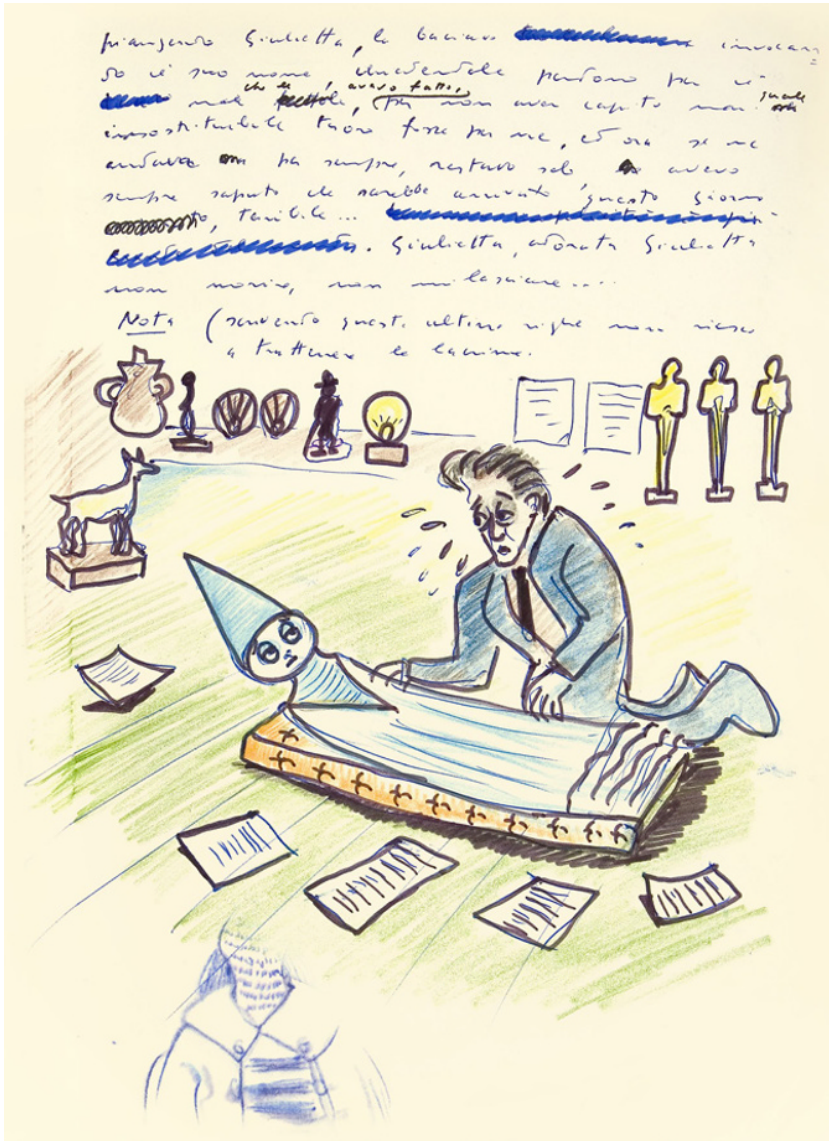 piangendo Giulietta, la baciavo invocan=
do il suo nome chiedendole perdono per il
male che le avevo fatto, per non aver capito mai quale
insostituibile tesoro fosse per me, ed ora se ne
andava per sempre, restavo solo avevo
sempre saputo che sarebbe arrivato questo giorno
terribile...
. Giulietta, adorata Giulietta
non morire, non mi lasciare....
Nota (scrivendo queste ultime righe non riesco
a trattenere le lacrime.